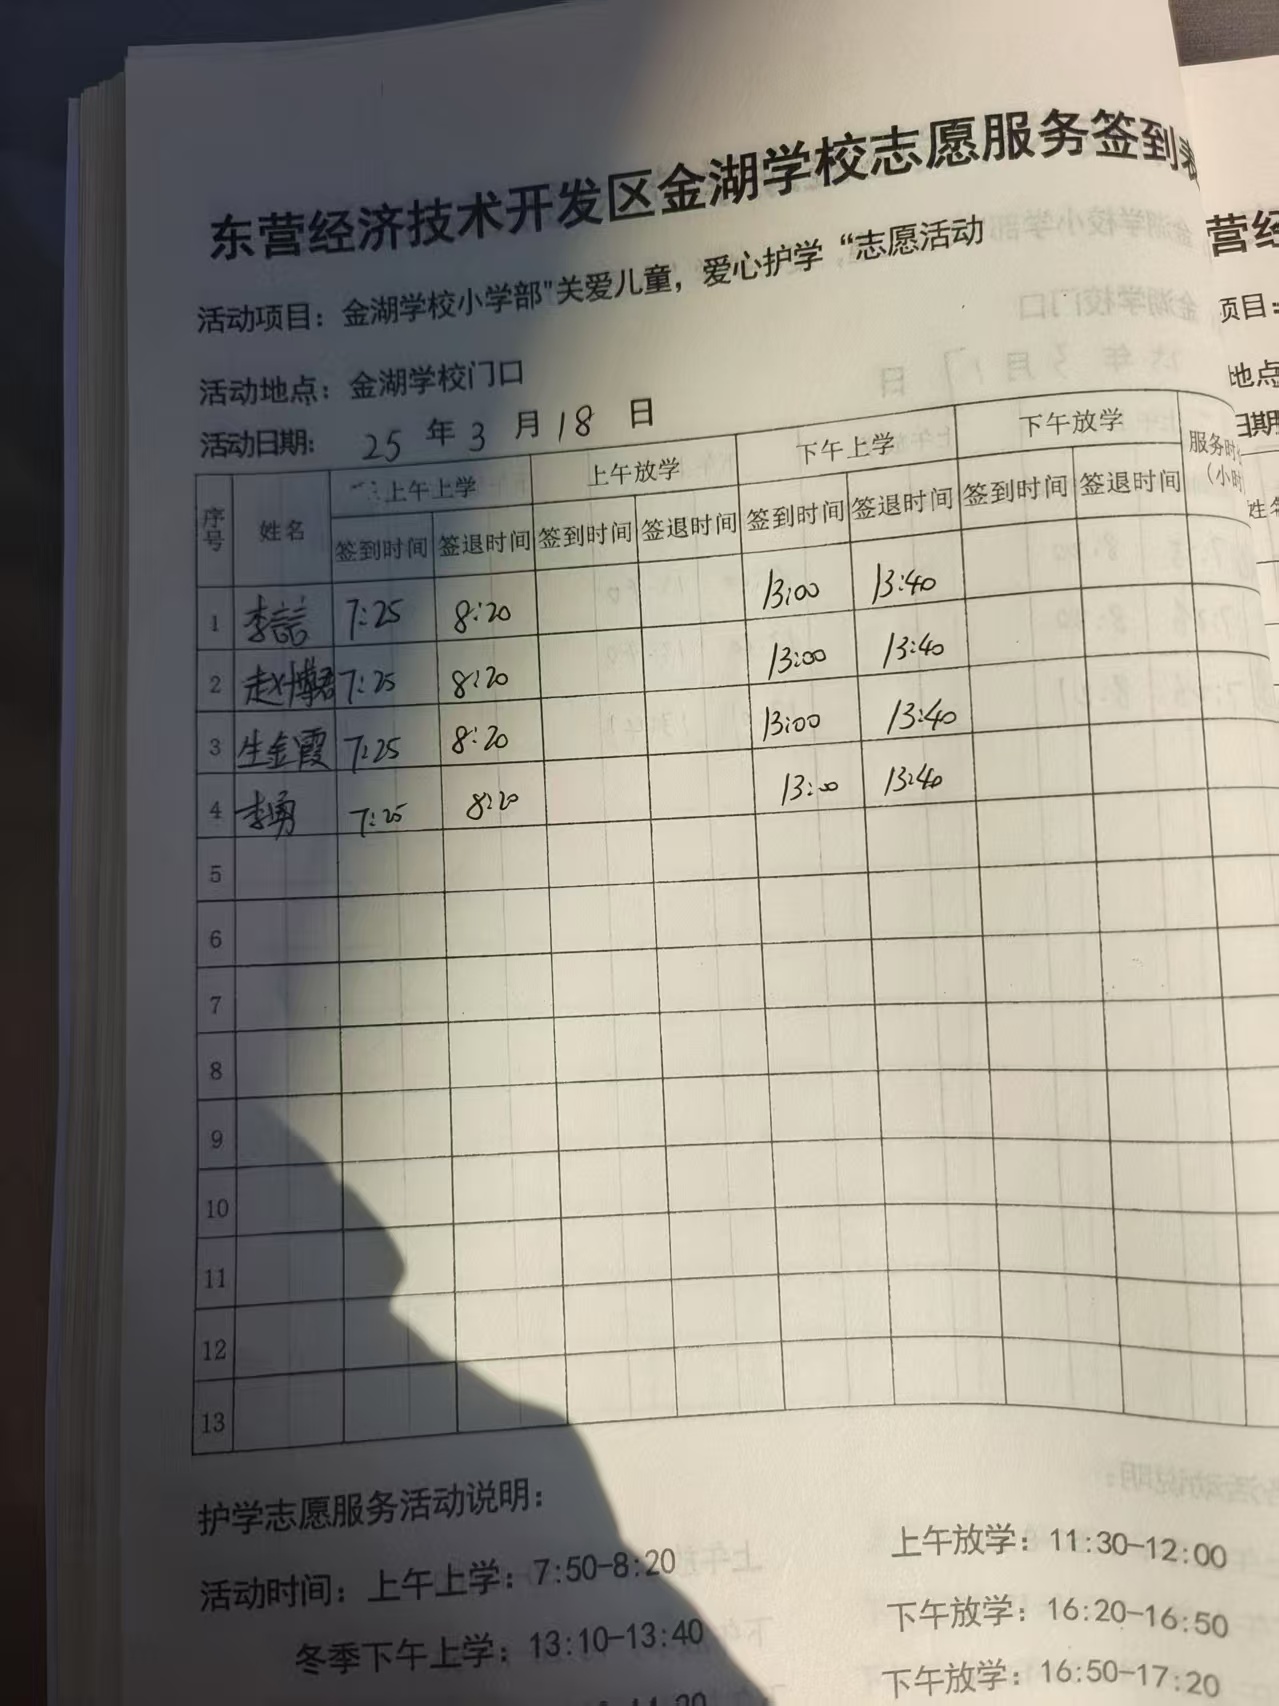 东营经济技术开发区金湖学校志愿服务签到表
活动项目：金湖学校小学部"关爱儿童，爱心护学“志愿活动
活动地点：金湖学校门口
活动日期：25 年 3 月 18 日
序号 姓名 上午上学 上午放学 下午上学 下午放学 服务时
（小时
签到时间 签退时间 签到时间 签退时间 签到时间 签退时间 签到时间 签退时间
1 李喆 7:25 8:20 13:00 13:40
2 赵博君 7:25 8:20 13:00 13:40
3 生金霞 7:25 8:20 13:00 13:40
4 李勇 7:25 8:20 13:00 13:40
5
6
7
8
9
10
11
12
13
护学志愿服务活动说明：
活动时间：上午上学：7:50-8:20 上午放学：11:30-12:00
冬季下午上学：13:10-13:40 下午放学：16:20-16:50
下午放学：16:50-17:20
营经
项目：
地点
日期
姓名